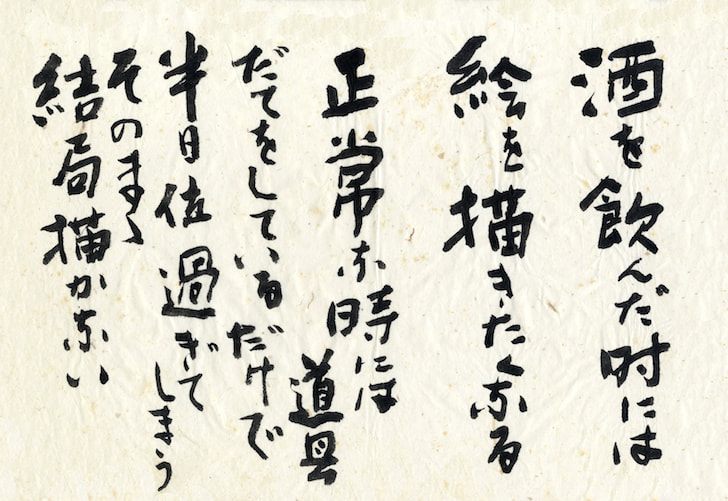 酒を飲んだ时には
絵を描きたくなる
正常な時には道具
だてをしているだけで
半日位過ぎてしまう
そのまゝ
結局描かない